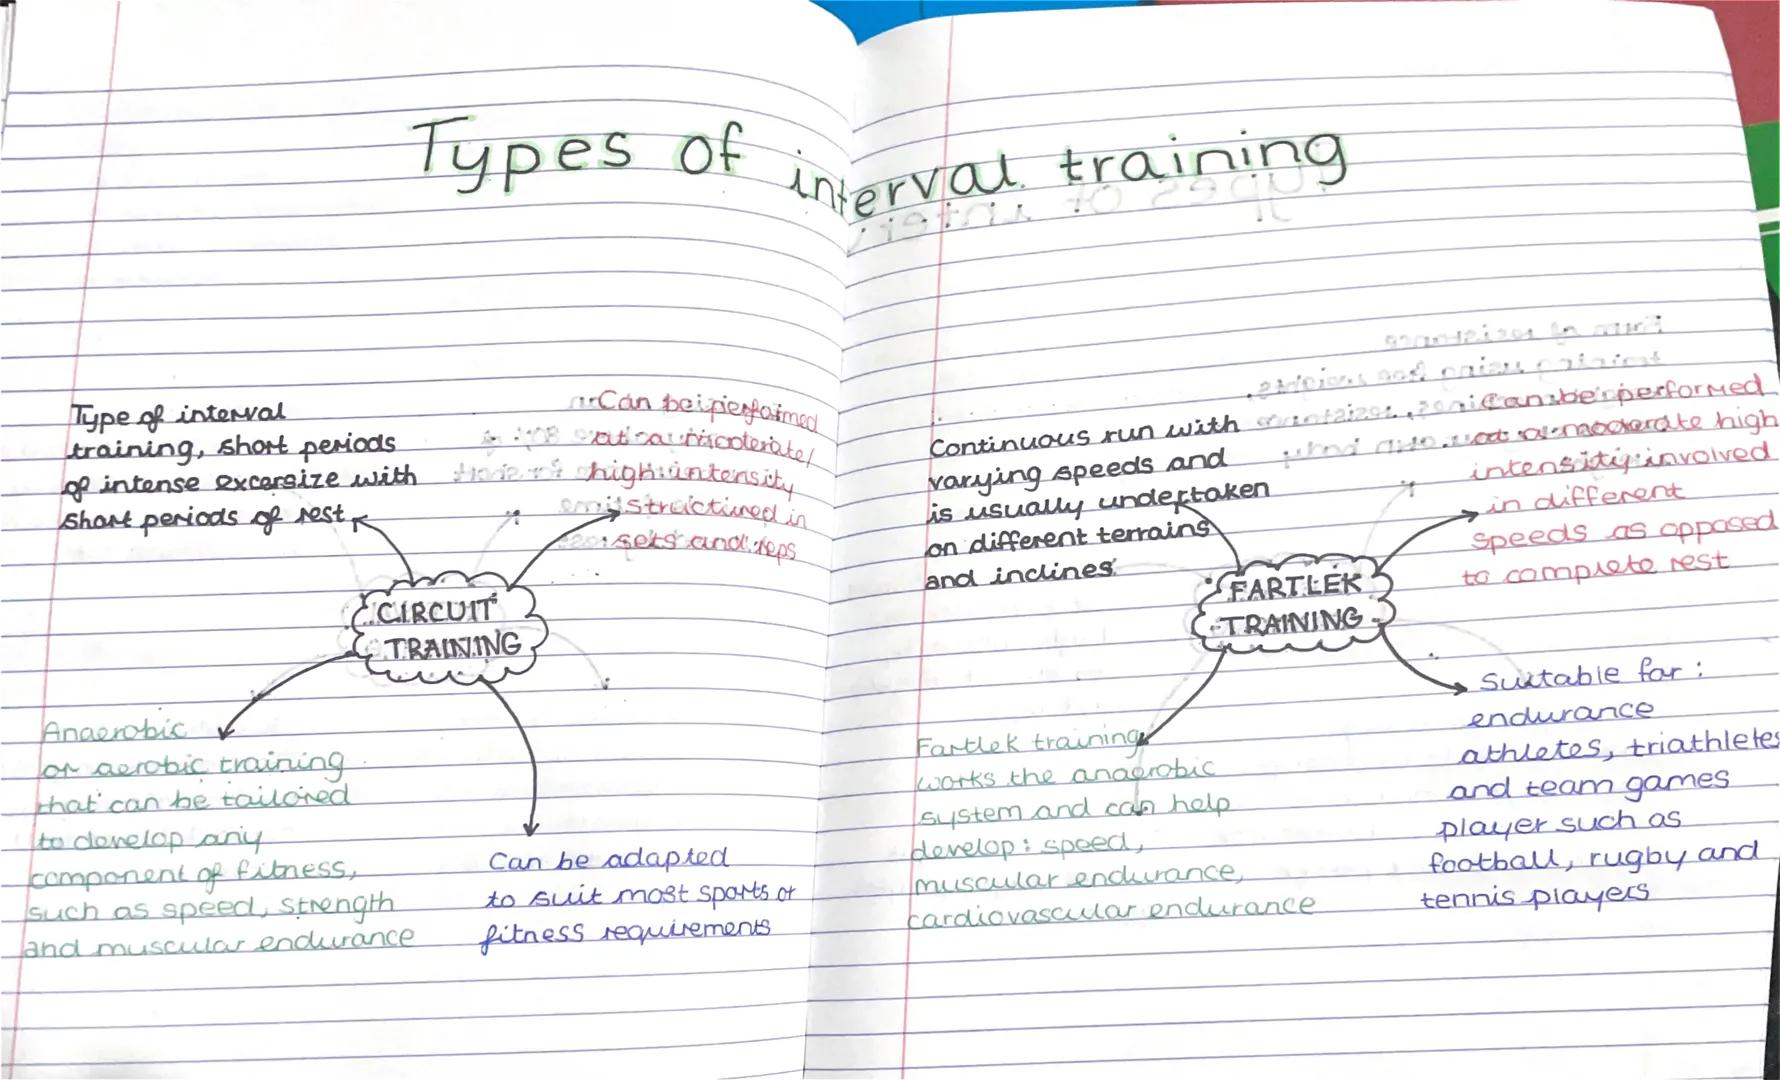 Types of interval training
Type of interval
training, short periods
of intense excersize with
short periods of rest
Can be performed
at a moderate/
high intensity
structured in
sets and reps
CIRCUIT
TRAINING
Anaerobic
or aerobic training
that can be tailored
to develop any
component of fitness,
such as speed, strength
and muscular endurance
Can be adapted
to suit most sports or
fitness requirements
Continuous run with
varying speeds and
is usually undertaken
on different terrains
and inclines
Can be performed
at a moderate high
intensity involved
in different
speeds as opposed
to complete rest
FARTLEK
TRAINING
Fartlek training
works the anaerobic
system and can help
develop: speed,
muscular endurance,
cardiovascular endurance
Suitable for:
endurance
athletes, triathletes
and team games
player such as
football, rugby and
tennis players